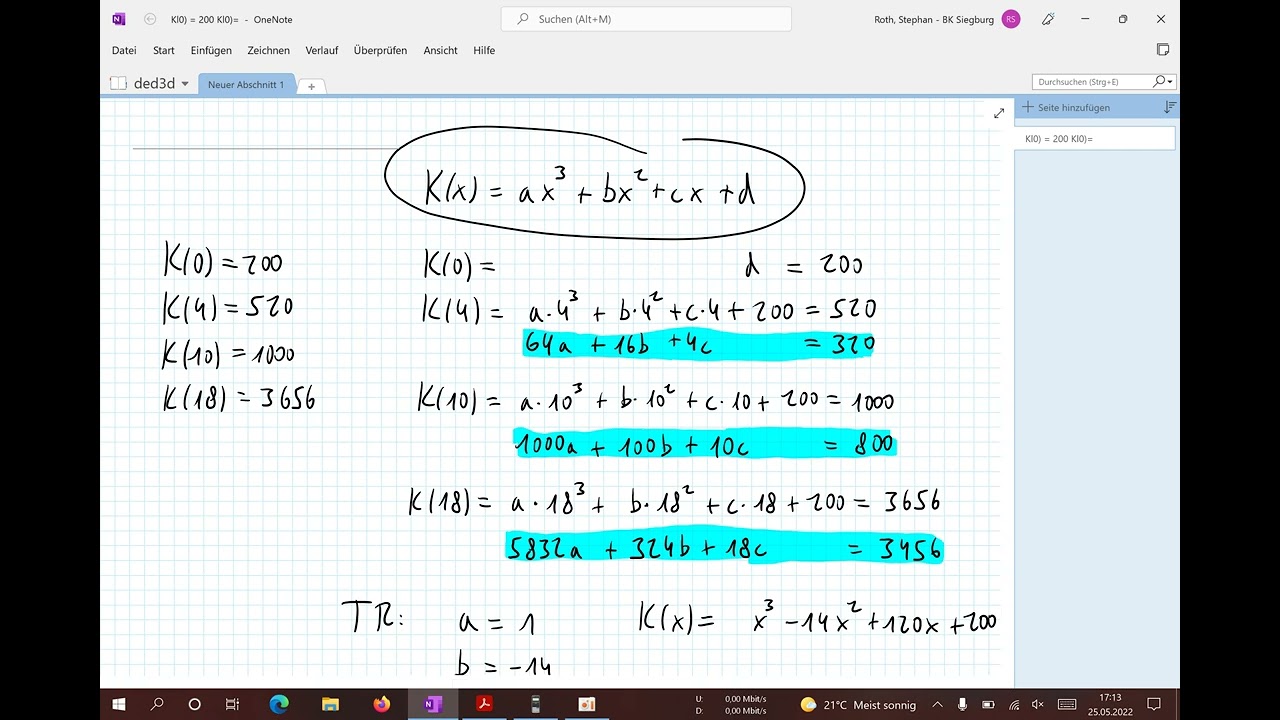 K(0) = 200 K(0)= - OneNote
Suchen (Alt+M)
Roth, Stephan - BK Siegburg
RS
Datei Start Einfügen Zeichnen Verlauf Überprüfen Ansicht Hilfe
ded3d
Neuer Abschnitt 1
+
Durchsuchen (Strg+E)
+ Seite hinzufügen
K(0) = 200 K(0)=
K(x) = ax³ + bx² + cx + d
K(0) = 200
K(4) = 520
K(10) = 1000
K(18) = 3656
K(0) = d = 200
K(4) = a·4³ + b·4² + c·4 + 200 = 520
64a + 16b + 4c = 320
K(10) = a·10³ + b·10² + c·10 + 200 = 1000
1000a + 100b + 10c = 800
K(18) = a·18³ + b·18² + c·18 + 200 = 3656
5832a + 324b + 18c = 3456
TR: a = 1 K(x) = x³ - 14x² + 120x + 200
b = -14
U: 0,00 Mbit/s
D: 0,00 Mbit/s
21°C Meist sonnig
17:13
25.05.2022